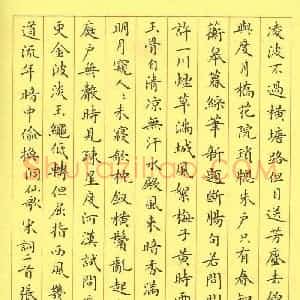 凌波不過橫塘路但目送芳塵去錦
與度月橋花院瑣窗朱戶只有春知
蘅皋暮綵筆新題斷腸句若問閒
許一川煙草滿城風絮梅子黃時雨
玉骨自清涼無汗水殿風來暗香滿
明月窺人人未寢欹枕釵橫鬢亂起
庭戶無聲時見疏星度河漢試問夜
更金波淡玉繩低轉但屈指西風幾
道流年暗中偷換洞仙歌宋詞二首張
Shufaziliao.com